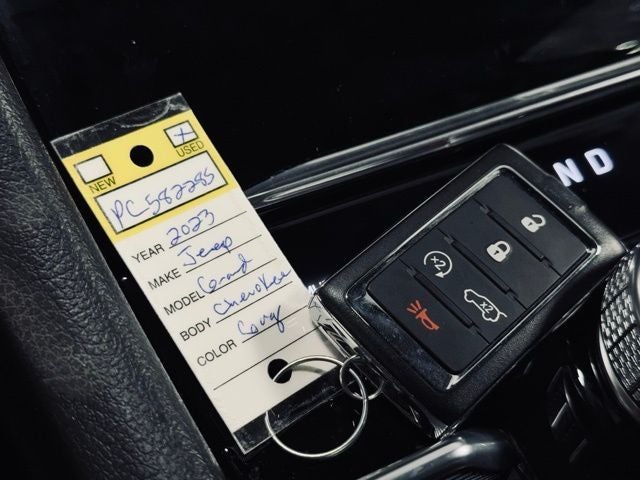 NEW
X USED
PC582285
YEAR 2023
MAKE Jeep
MODEL Grand
BODY Cherokee
COLOR Gray
N D
x2
x2